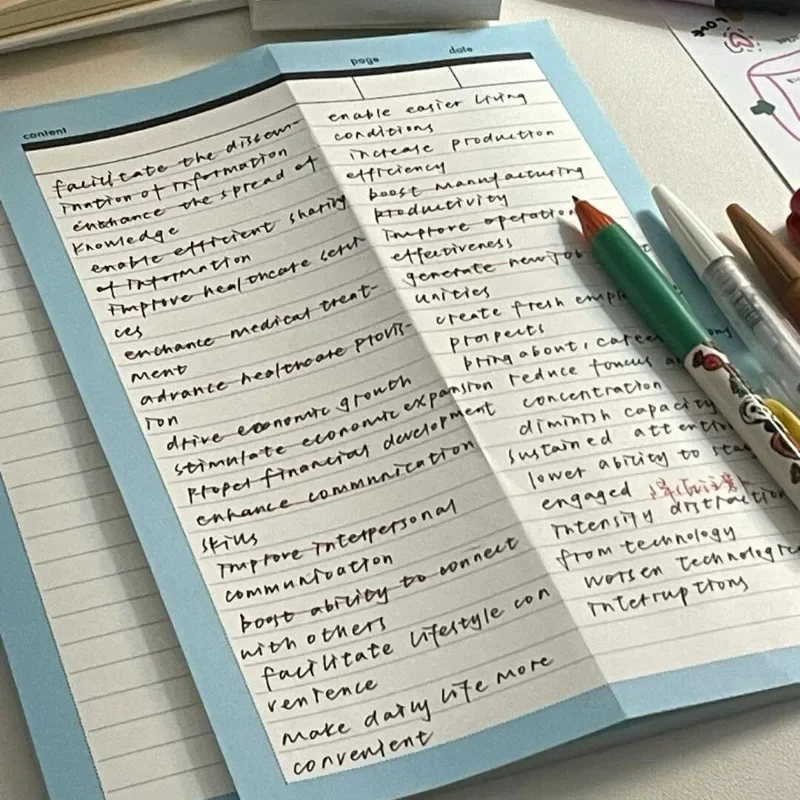 content
facilitate the dissem-
ination of information
enhance the spread of
knowledge
enable efficient sharing
of information
improve healthcare servi-
ces
enchance medical treat-
ment
advance healthcare provis-
ion
drive economic growth
stimulate economic expansion
propel financial development
enhance communication
skills
improve interpersonal
communication
boost ability to connect
with others
facilitate lifestyle con
venience
make daily life more
convenient
page date
enable easier living
conditions
increase production
efficiency
boost manufacturing
productivity
improve operation
effectiveness
generate new job
unities
create fresh empl
prospects
bring about, career
reduce foucus a
concentration
diminish capacity
sustained attention
lower ability to stay
engaged
intensify distraction
from technology
worsen technologica
interruptions
LOVE